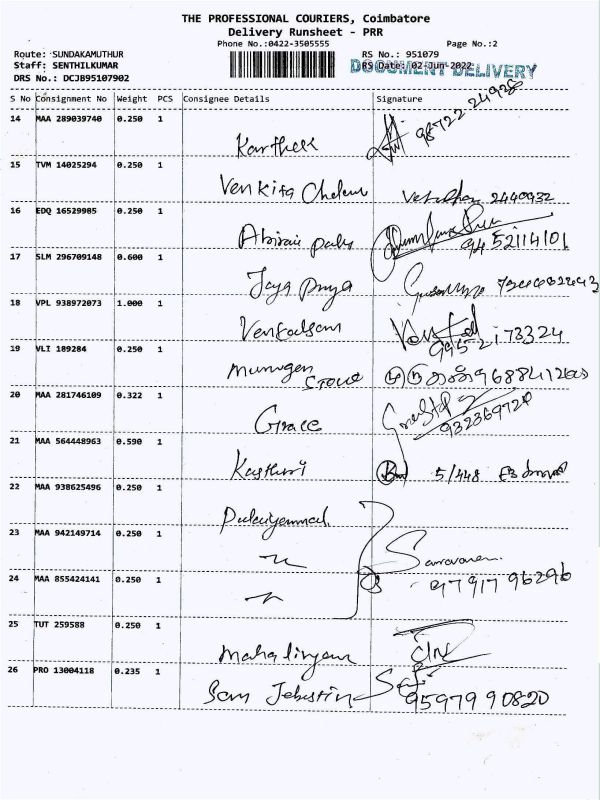 THE PROFESSIONAL COURIERS, Coimbatore
Delivery Runsheet - PRR
Phone No.:0422-3505555 Page No.:2
Route: SUNDAKAMUTHUR RS No.: 951079
Staff: SENTHILKUMAR RS Date: 02-Jun-2022 DOCUMENT DELIVERY
DRS No.: DCJB95107902
S No Consignment No Weight PCS Consignee Details Signature
14 MAA 289039740 0.250 1
Karthek 98722 24928
15 TVM 14025294 0.250 1
Venkita Chelam 2440932
16 EDQ 16529985 0.250 1
Abirai 94 52114101
17 SLM 296709148 0.600 1
Jaya Priya
18 VPL 938972073 1.000 1
Venkadsam 995-2173324
19 VLI 189284 0.250 1
Murugen Store
20 MAA 281746109 0.322 1
Grace 932369720
21 MAA 564448963 0.590 1
Kasthuri 5/448
22 MAA 938625496 0.250 1
23 MAA 942149714 0.250 1
Saravanan
24 MAA 855424141 0.250 1
97917 96296
25 TUT 259588 0.250 1
Mahalingam
26 PRO 13004118 0.235 1
Sam Jebastin 95979 90820